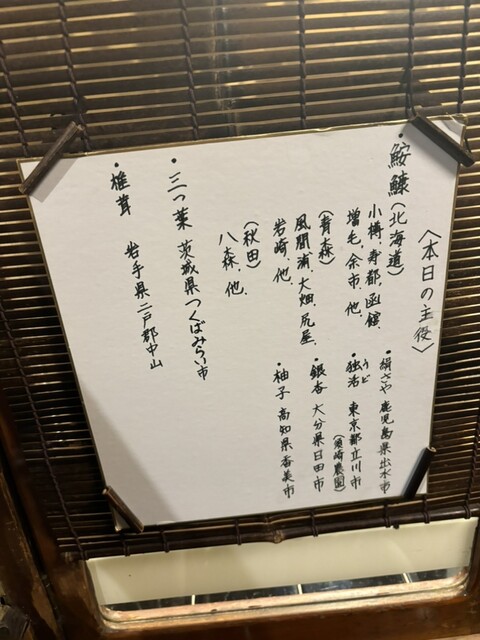 〈本日の主役〉
・鮟鱇(北海道)
小樽、寿都、函館、
増毛、余市、他、
(青森)
風間浦、大畑、尻屋、
岩崎、他、
(秋田)
八森、他、
・絹さや 鹿児島県出水市
・独活 東京都立川市
うど
(須崎農園)
・銀杏 大分県日田市
・柚子 高知県香美市
・三つ葉 茨城県つくばみらい市
・椎茸 岩手県二戸郡中山